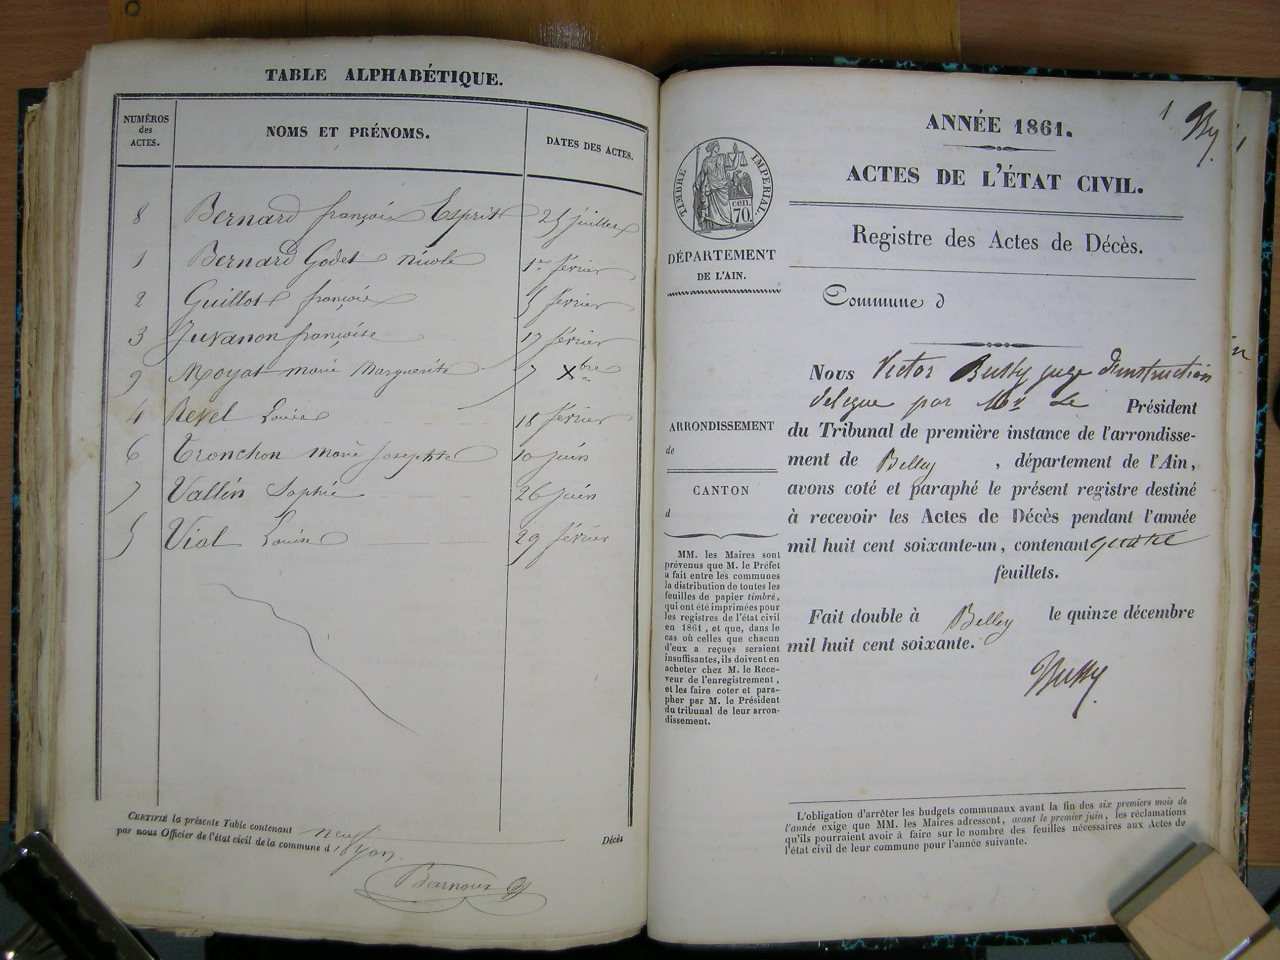 TABLE ALPHABÉTIQUE.
NUMÉROS
des
ACTES.
NOMS ET PRÉNOMS.
DATES DES ACTES.
8 Bernard françois Esprit 25 juillet
1 Bernard Godet nicole 1er février
2 Guillot françois 5 février
3 Juvanon françoise 17 février
9 Moyat marie Marguerite 7 Xbre
4 Revel Louise 18 février
6 Tronchon marie josephte 10 juin
7 Vallin Sophie 26 juin
5 Viol Louise 29 février
CERTIFIÉ la présente Table contenant neuf Décès
par nous Officier de l'état civil de la commune d
ANNÉE 1861.
1
ACTES DE L'ÉTAT CIVIL.
Registre des Actes de Décès.
TIMBRE IMPÉRIAL.
cen.
70.
DÉPARTEMENT
DE L'AIN.
Commune d
ARRONDISSEMENT
de
CANTON
d
MM. les Maires sont
prévenus que M. le Préfet
a fait entre les communes
la distribution de toutes les
feuilles de papier timbré,
qui ont été imprimées pour
les registres de l'état civil
en 1861, et que, dans le
cas où celles que chacun
d'eux a reçues seraient
insuffisantes, ils doivent en
acheter chez M. le Rece-
veur de l'enregistrement,
et les faire coter et para-
pher par M. le Président
du tribunal de leur arron-
dissement.
Nous Victor Bussy juge d'instruction
delegue par Mr Le Président
du Tribunal de première instance de l'arrondisse-
ment de Belley, département de l'Ain,
avons coté et paraphé le présent registre destiné
à recevoir les Actes de Décès pendant l'année
mil huit cent soixante-un, contenant quatre
feuillets.
Fait double à Belley le quinze décembre
mil huit cent soixante.
Bussy
L'obligation d'arrêter les budgets communaux avant la fin des six premiers mois de
l'année exige que MM. les Maires adressent, avant le premier juin, les réclamations
qu'ils pourraient avoir à faire sur le nombre des feuilles nécessaires aux Actes de
l'état civil de leur commune pour l'année suivante.